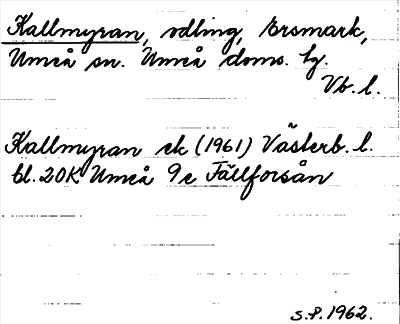 Kallmyran, odling, Ersmark,
Umeå sn. Umeå doms. hg.
Vb. l.
Kallmyran ek (1961) Västerb. l.
bl. 20K Umeå 9e Fällforsån
s.f. 1962.